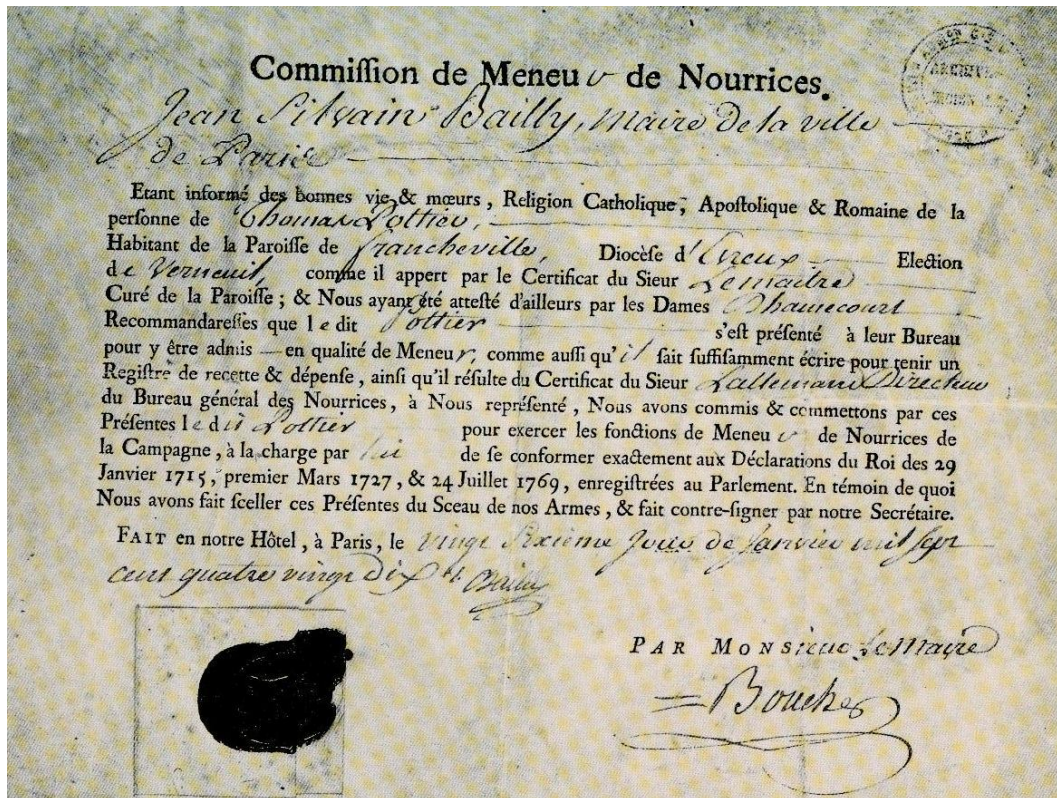 Commiſſion de Meneur de Nourrices.
Jean Silvain Bailly, Maire de la ville
de Paris
Etant informé des bonnes vie & mœurs, Religion Catholique, Apoſtolique & Romaine de la
perſonne de Thomas Pottier,
Habitant de la Paroiſſe de francheville, Diocèſe d'Evreux Election
de Verneuil, comme il appert par le Certificat du Sieur Lemaitre
Curé de la Paroiſſe ; & Nous ayant été atteſté d'ailleurs par les Dames
Recommandareſſes que ledit Pottier s'eſt préſenté à leur Bureau
pour y être admis en qualité de Meneur, comme auſſi qu'il ſait ſuffiſamment écrire pour tenir un
Regiſtre de recette & dépenſe, ainſi qu'il réſulte du Certificat du Sieur Lallemand Directeur
du Bureau général des Nourrices, à Nous repréſenté, Nous avons commis & commettons par ces
Préſentes ledit Pottier pour exercer les fonctions de Meneur de Nourrices de
la Campagne, à la charge par lui de ſe conformer exactement aux Déclarations du Roi des 29
Janvier 1715, premier Mars 1727, & 24 Juillet 1769, enregiſtrées au Parlement. En témoin de quoi
Nous avons fait ſceller ces Préſentes du Sceau de nos Armes, & fait contre-ſigner par notre Secrétaire.
FAIT en notre Hôtel, à Paris, le vingt Sixième Jour de Janvier mil Sept
cent quatre vingt Dix Bailly
PAR MONSieur Le Maire
Boucher